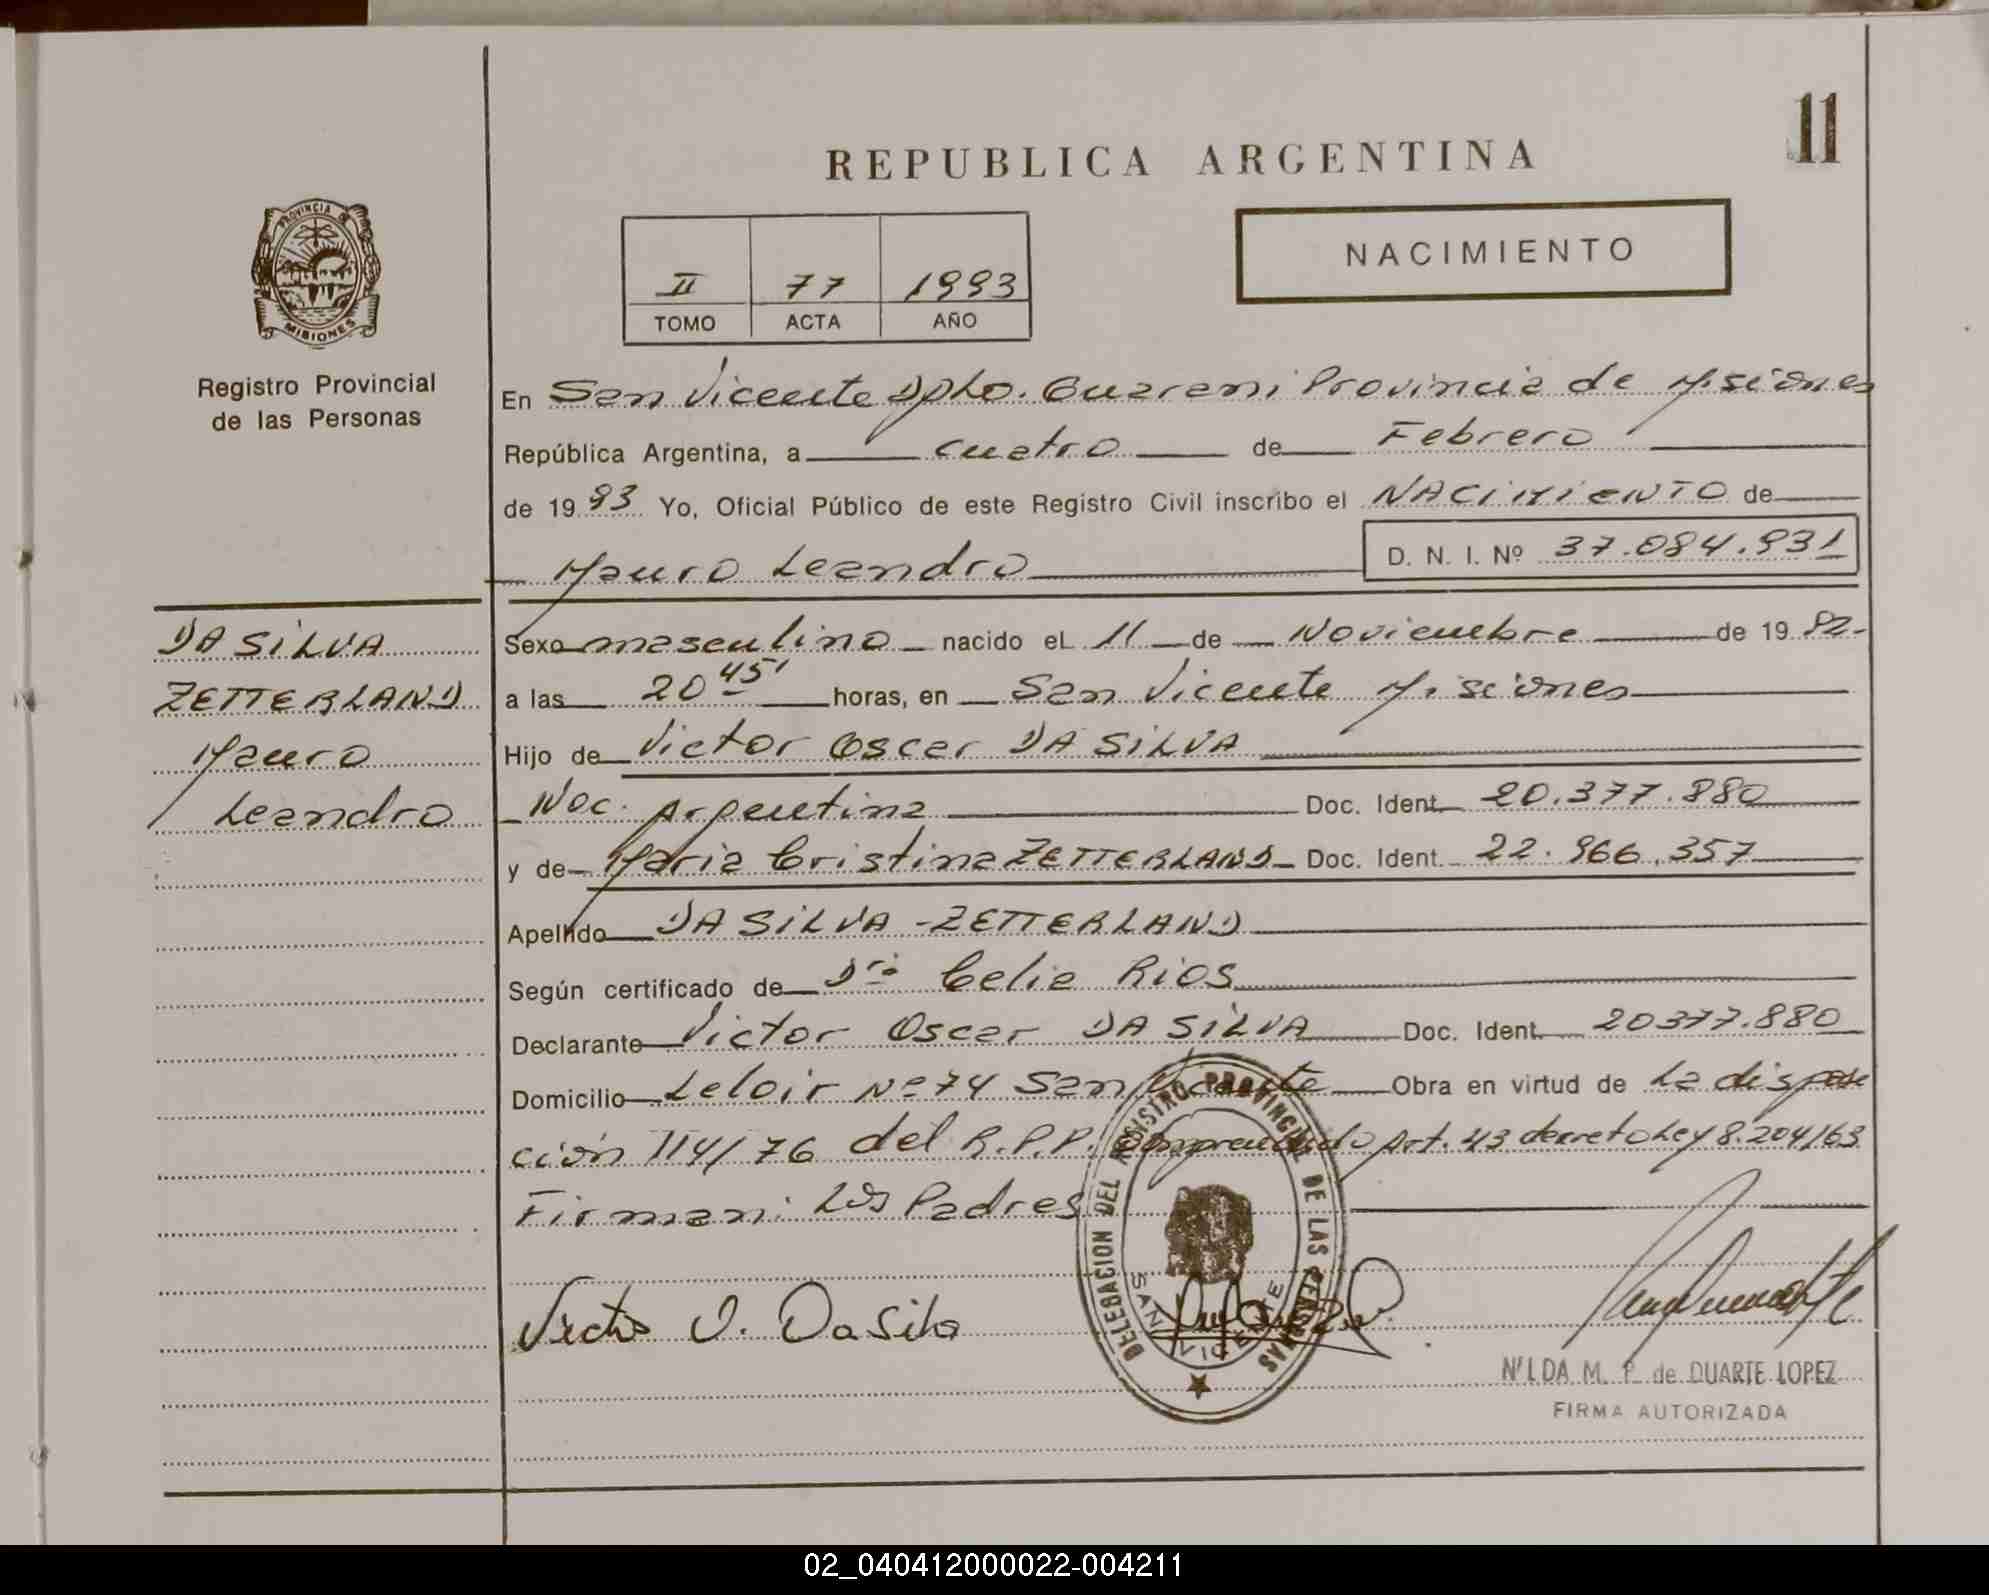 11
REPUBLICA ARGENTINA
PROVINCIA DE
MISIONES
Registro Provincial
de las Personas
II 77 1993
TOMO ACTA AÑO
NACIMIENTO
En San Vicente Dpto. Guarani Provincia de Misiones
República Argentina, a cuatro de Febrero
de 1993 Yo, Oficial Público de este Registro Civil inscribo el NACIMIENTO de
Mauro Leandro D. N. I. Nº 37.084.931
DA SILVA
ZETTERLAND
Mauro
Leandro
Sexo masculino nacido el 11 de Noviembre de 1992-
a las 20 45' horas, en San Vicente Misiones
Hijo de Victor Oscar DA SILVA
Nac. Argentina Doc. Ident. 20.377.880
y de Maria Cristina ZETTERLAND Doc. Ident. 22.966.357
Apellido DA SILVA - ZETTERLAND
Según certificado de Dra Celia Rios
Declarante Victor Oscar DA SILVA Doc. Ident. 20377.880
Domicilio Leloir Nº 74 San Vicente Obra en virtud de La dispo
ción 114/76 del R.P.P. comprendido Art. 43 decreto Ley 8.204/63
Firman: Los Padres
DELEGACION DEL REGISTRO PROVINCIAL DE LAS PERSONAS
SAN VICENTE
Victor O. Da Silva
NILDA M. P. de DUARTE LOPEZ
FIRMA AUTORIZADA
02_040412000022-004211